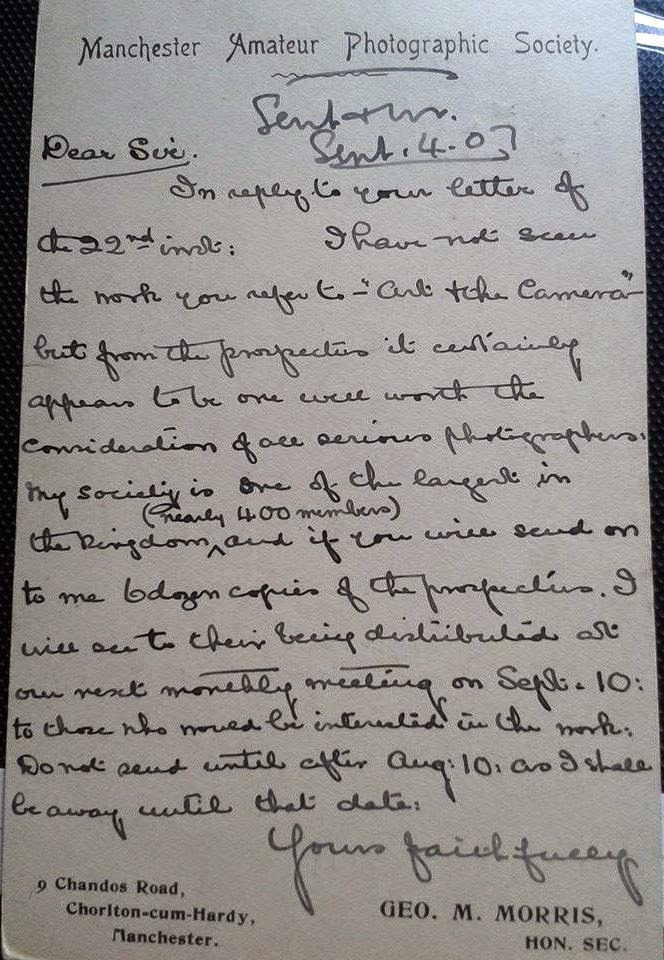 Manchester Amateur Photographic Society.
Sent
Sept. 4. 03
Dear Sir.
In reply to your letter of
the 22nd inst: I have not seen
the work you refer to - "Art & the Camera"
but from the prospectus it certainly
appears to be one well worth the
consideration of all serious photographers.
My society is one of the largest in
(nearly 400 members)
the Kingdom, and if you will send on
to me 6 dozen copies of the prospectus. I
will see to their being distributed at
our next monthly meeting on Sept. 10:
to those who would be interested in the work:
Do not send until after Aug: 10: as I shall
be away until that date:
Yours faithfully
9 Chandos Road,
Chorlton-cum-Hardy,
Manchester.
GEO. M. MORRIS,
HON. SEC.